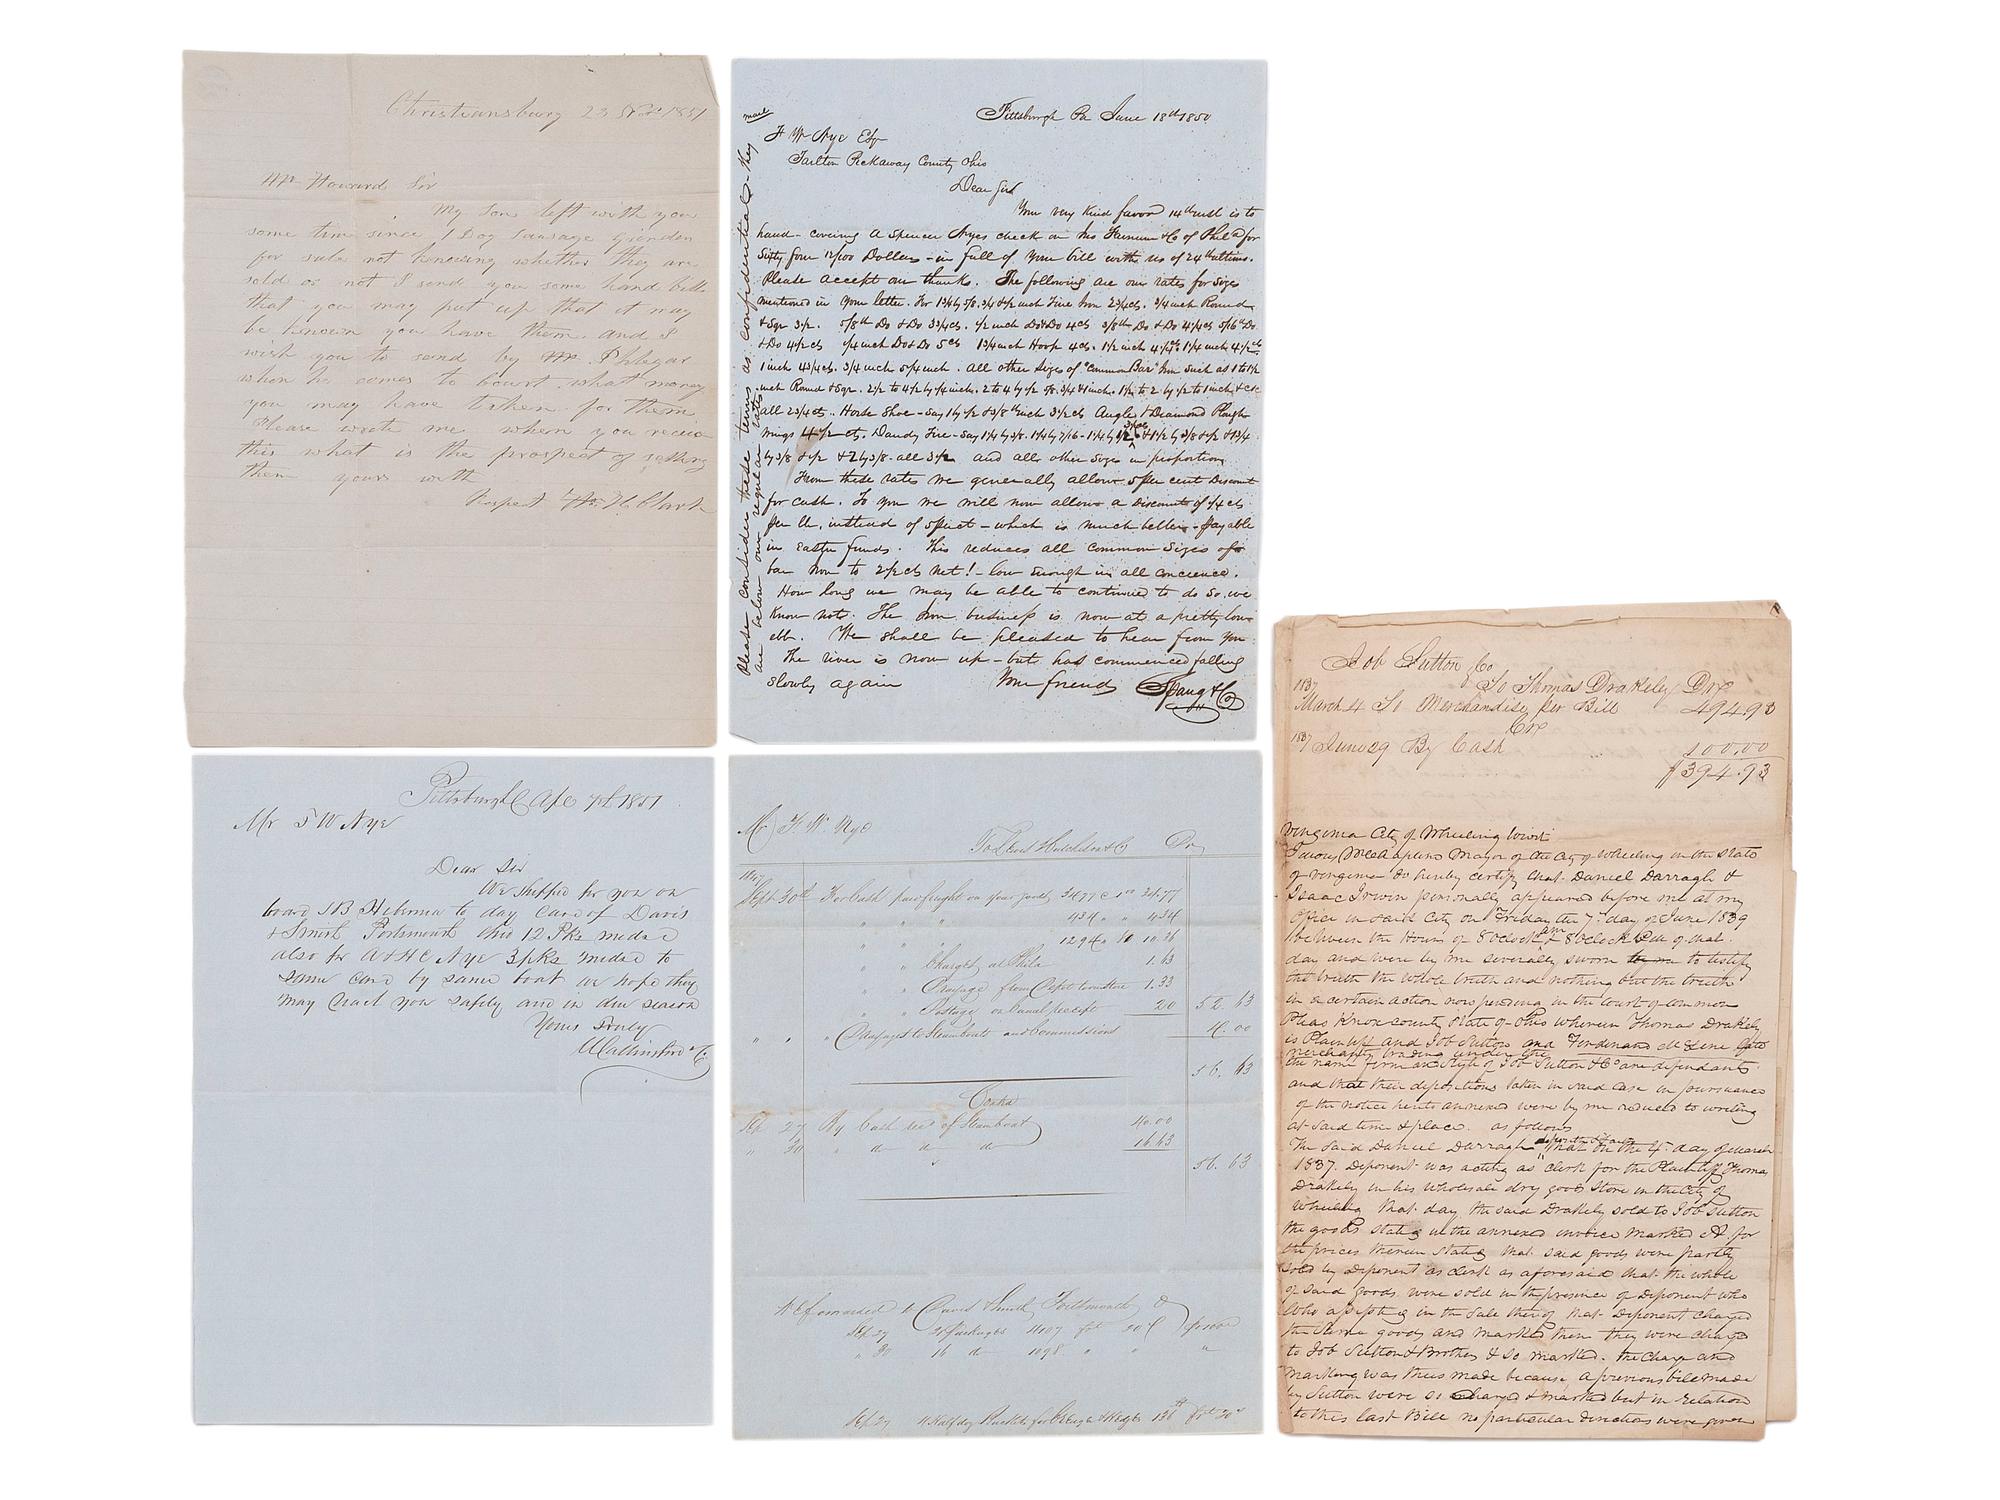 Christiansburg 23 Nov 1851
Mr Howard Sir
My Son left with you
some time since 1 Doz Sausage
for sale not knowing whether they are
sold or not I send you some hand bills
that you may put up that it may
be known you have them and I
wish you to send by Mr. Phlegar
when he comes to Court what money
you may have taken for them
Please wrote me when you receive
this what is the prospect of selling
them yours with
Respect Wm H Clark
Pittsburgh Pa June 18th 1850
F W Nye Esq
Tarlton Pickaway County Ohio
Dear Sir
Your very kind favor 14th inst is to
hand - covering A Spencer Nyes check on & Co of Phila for
Sixty four 12/100 Dollars - in full of your bill with us of 24th ultimo.
Please accept our thanks. The following are our rates for sizes
mentioned in your letter. For 1 3/4 by 5/8. 3/4 & 1/2 inch Tire Iron 2 3/4 cts. 3/4 inch Round
& Sqr 3 1/2. 5/8th Do & Do 3 3/4 cts. 1/2 inch Do & Do 4 cts 3/8th Do & Do 4 1/4 cts 5/16th Do
& Do 4 1/2 cts 1/4 inch Do & Do 5 cts 1 3/4 inch Hoop 4 cts. 1 1/2 inch 4 1/4 cts 1 1/4 inch 4 1/2 cts
1 inch 4 3/4 cts. 3/4 inch 5 1/4 inch. All other sizes of "Common Bar" Iron such as 1 to 1 1/2
inch Round & Sqr. 2 1/2 to 4 1/2 by 1/4 inch. 2 to 4 by 1/2 5/8. 3/4 & 1 inch. 1 1/4 to 2 by 1/2 to 1 inch &c &c
all 2 3/4 cts. Horse Shoe - say 1 by 1/2 & 3/8th inch 3 1/2 cts Angle & Diamond Plough
wings 4 1/2 cts. Dandy Tire - say 1 1/4 by 3/8. 1 1/4 by 7/16 - 1 1/4 by 1/2 3 1/4 cts & 1 1/2 by 3/8 & 1/2 & 1 3/4
by 3/8 & 1/2 & 2 by 3/8 - all 3 1/2 and all other sizes in proportion
From these rates we generally allow 5 per cent Discount
for cash. To you we will now allow a Discount of 1/4 cts
per lb. instead of 5 pr ct - which is much better - payable
in Eastn funds. This reduces all common sizes of
bar Iron to 2 1/2 cts Net! - low enough in all concience.
How long we may be able to continued to do so. we
know not. The Iron business is now at a pretty low
ebb. We shall be pleased to hear from you
The river is now up - but has commenced falling
slowly again Your friends Spang & Co
Please consider these terms as confidential - they
are below our regular rates
Pittsburgh Apl 7th 1851
Mr F W Nye
Dear Sir
We shipped for you on
board S B Hibernia to day care of Davis
& Smith Portsmouth Ohio 12 Pks mdse
also for A & H C Nye 3 pks mdse to
same care by same boat we hope they
may reach you safely and in due season
Yours Truly
Wallingford & Co
Mr F. W. Nye
To Lewis Hutchison & Co Dr
1847
Sept 30th For Cash paid freight on your goods 3477 @ 1.00 34.77
" " " 434 " " 4.34
" " " 1294 " 80 10.36
" " Charges at Phila 1.63
" " Drayage from Depot 1.33
" " Postage on Canal receipt 20 52.63
" " " Drayages to Steamboats and Commissions 4.00
56.63
Contra
Sep 27 By Cash rec'd of Steamboat 40.00
" 30 " do do do 16.63
56.63
We forwarded to Davis & Smith Portsmouth O
Sep 27 Packages 4107 20 C
" 30 16 do 1098 " " "
Sep 27 Half doz Buckets for George & Hedges
Job Sutton & Co
To Thomas Drakeley Dr
1837
March 4 To Merchandise per Bill 494.93
Cr
1837 June 29 By Cash 100.00
$394.93
Virginia City of Wheeling towit
Mayor of the City of Wheeling in the state
of Virginia do hereby certify that Daniel Darragh &
Isaac Irwin personally appeared before me at my
Office in said City on Friday the 7th day of June 1839
between the Hours of 8 oclock am & 8 oclock P.M. of that
day and were by me severally sworn to testify
the truth the whole truth and nothing but the truth
in a certain action now pending in the court of common
Pleas Knox county State of Ohio wherein Thomas Drakely
is Plaintiff and Job Sutton and Ferdinand late
merchants trading under the
the name firm and style of Job Sutton & Co are defendants
and that their depositions taken in said case in pursuance
of the notice hereto annexed were by me reduced to writing
at said time & place. as follows
The said Daniel Darragh that on the 4th day of march
1837. Deponent was acting as clerk for the Plaintiff Thomas
Drakely in his wholesale dry goods store in the City of
Wheeling that day the said Drakely sold to Job Sutton
the goods stated in the annexed invoice marked A for
the prices therein stated that said goods were partly
sold by Deponent as clerk as aforesaid that the whole
of said goods were sold in the presence of Deponent who
also assisted in the sale thereof that Deponent charged
the same goods and marked them they were charged
to Job Sutton & Brother & so marked. the charge and
marking was thus made because a previous bill made
by Sutton were so charged & marked but in relation
to this last Bill no particular directions were given